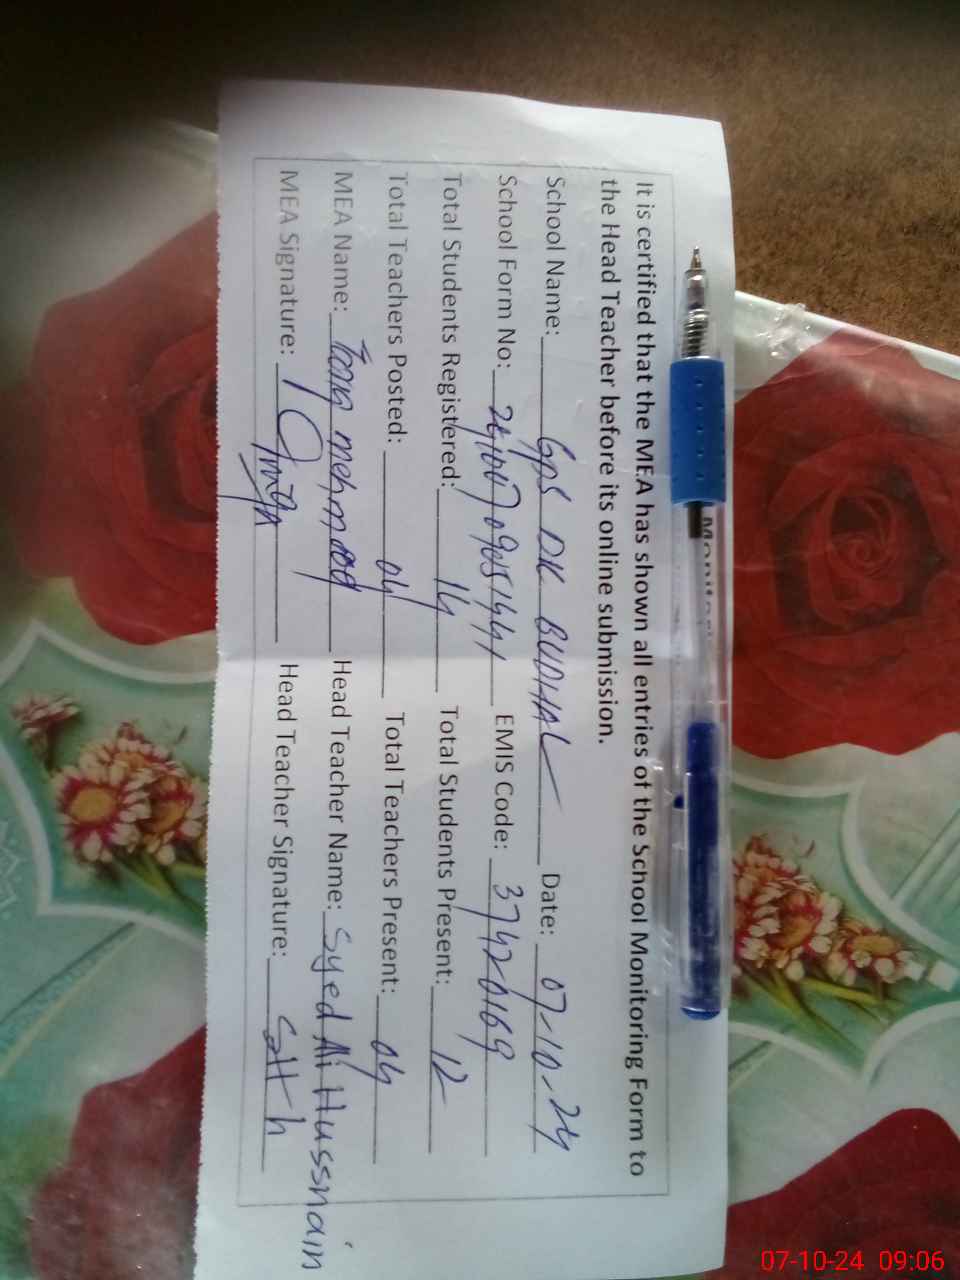 It is certified that the MEA has shown all entries of the School Monitoring Form to
the Head Teacher before its online submission.
School Name: GPS DK BUDHAL Date: 07-10-24
School Form No: EMIS Code: 37420169
Total Students Registered: 14 Total Students Present: 12
Total Teachers Posted: 04 Total Teachers Present: 04
MEA Name: mehmood Head Teacher Name: Syed Ali Hussnain
MEA Signature: Head Teacher Signature:
07-10-24 09:06